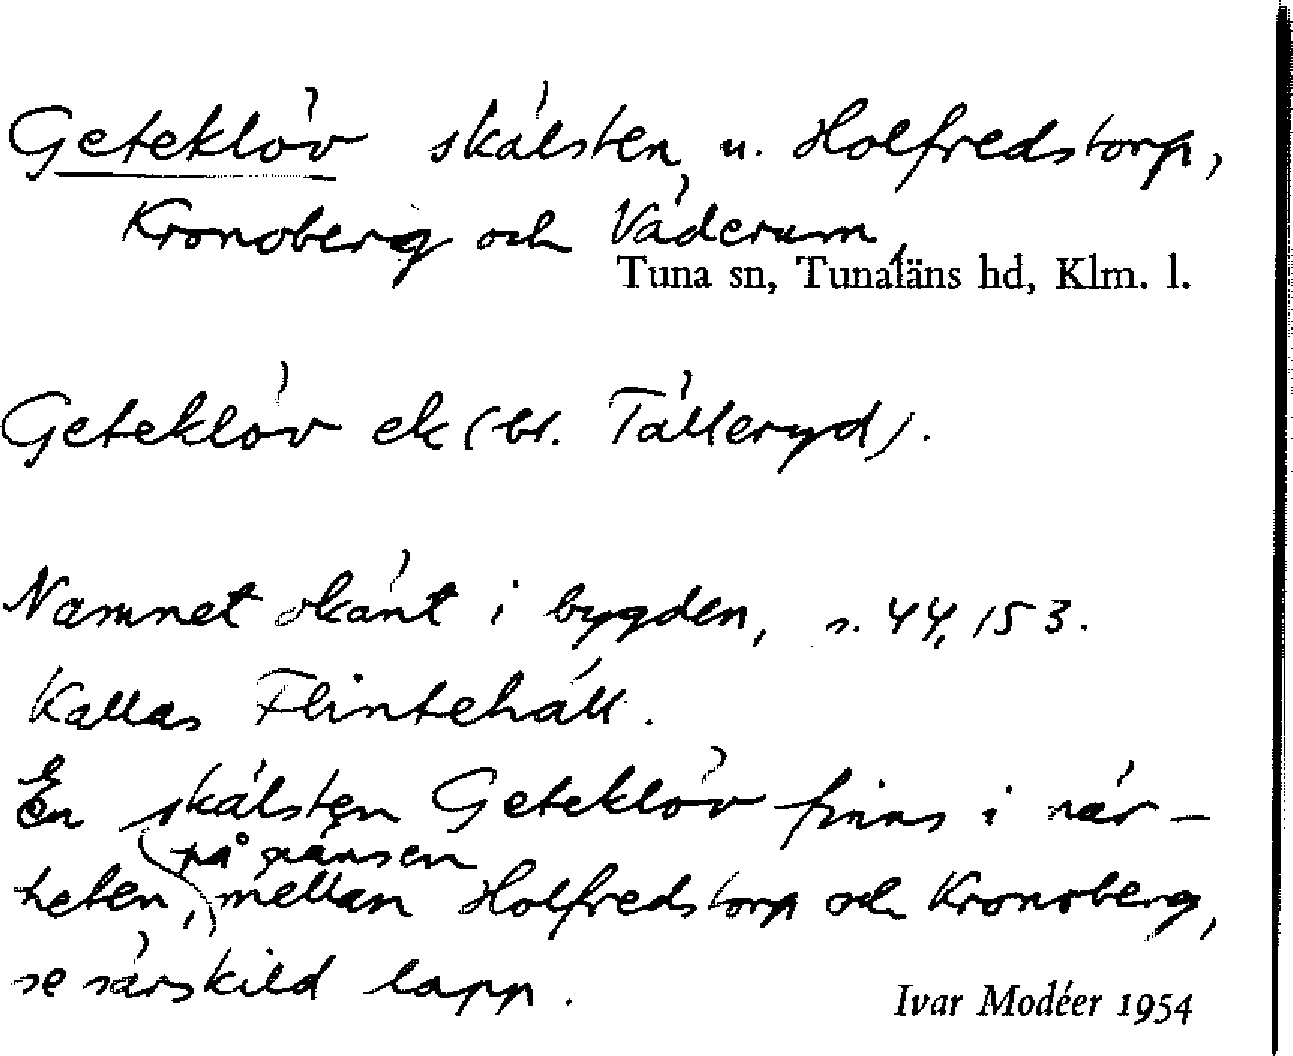 Geteklöv skälsten u. Holfredstorp,
Kronoberg och Väderum,
Tuna sn, Tunaläns hd, Klm. l.
Geteklöv ek (bl. Tälleryd).
Namnet okänt i bygden, s. 44, 153.
Kallas Flintehäll.
En skälsten Geteklöv finns i när-
på gränsen
heten, mellan Holfredstorp och Kronoberg,
se särskild lapp.
Ivar Modéer 1954